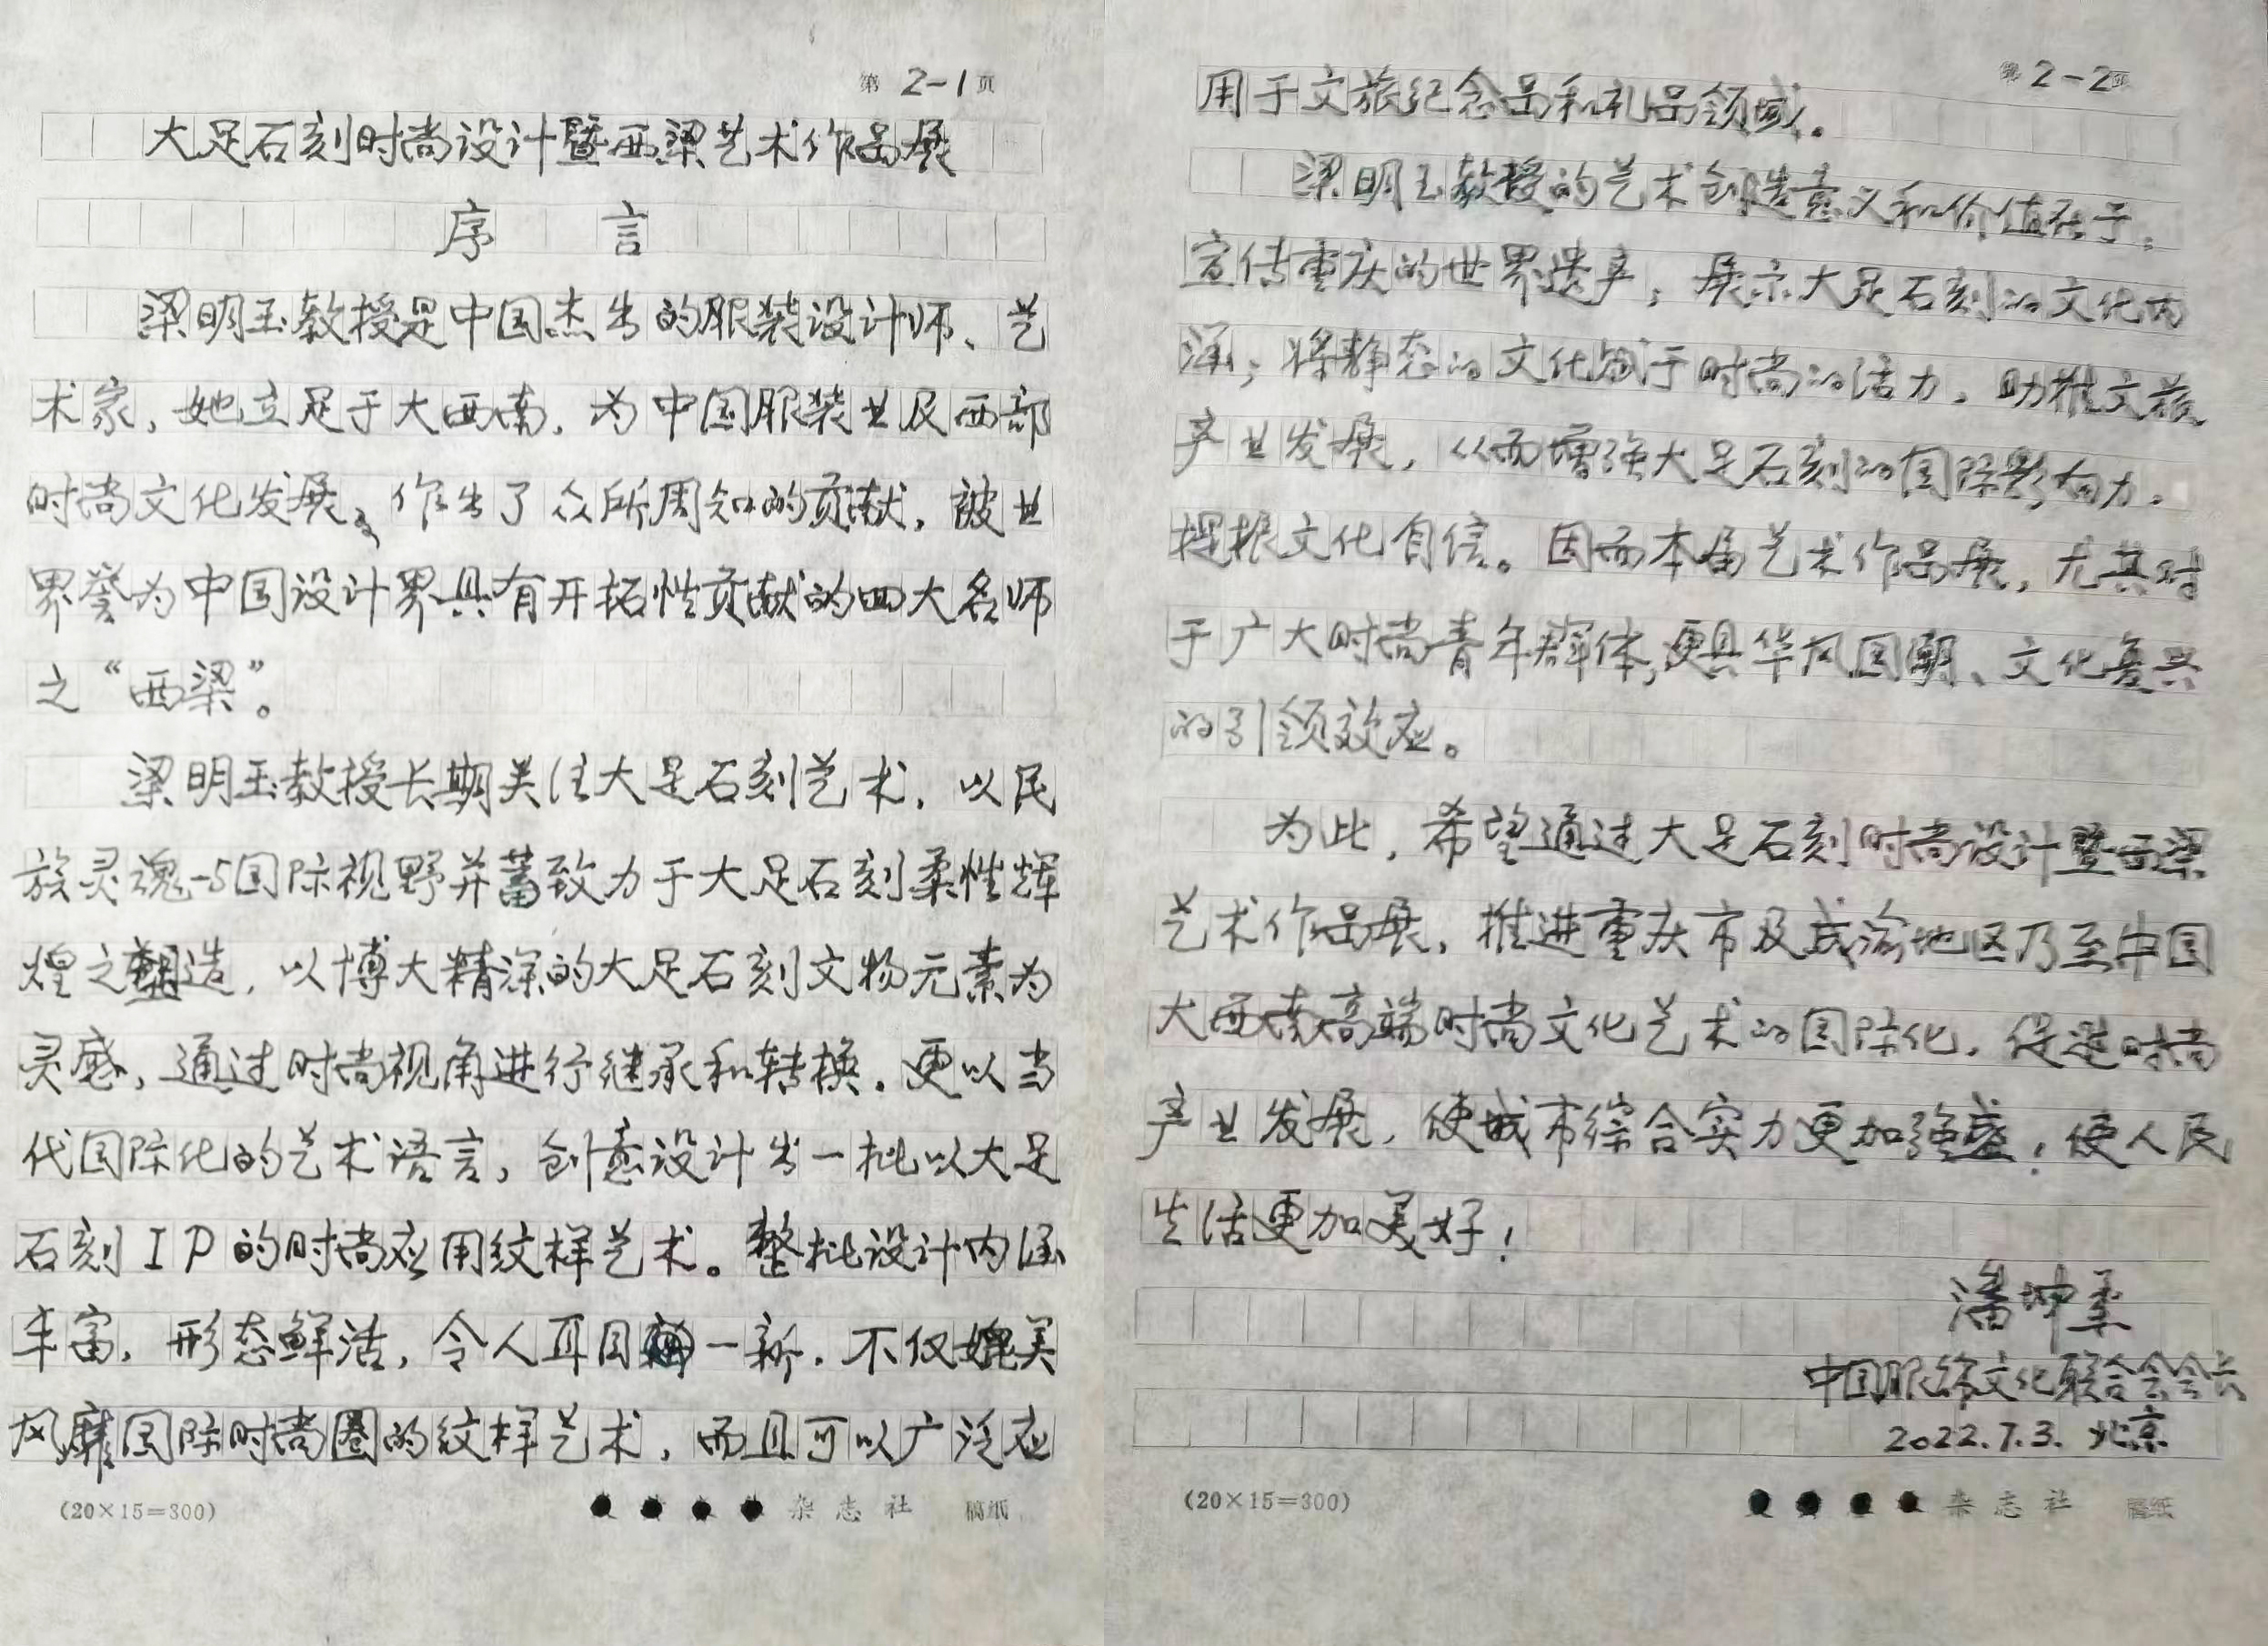 第 2-1 页
大足石刻时尚设计暨西梁艺术作品展
序 言
梁明玉教授是中国杰出的服装设计师、艺
术家，她立足于大西南，为中国服装业及西部
时尚文化发展，作出了众所周知的贡献，被业
界誉为中国设计界具有开拓性贡献的四大名师
之“西梁”。
梁明玉教授长期关注大足石刻艺术，以民
族灵魂与国际视野并蓄致力于大足石刻柔性辉
煌之塑造，以博大精深的大足石刻文物元素为
灵感，通过时尚视角进行继承和转换。更以当
代国际化的艺术语言，创意设计出一批以大足
石刻IP的时尚应用纹样艺术。整批设计内涵
丰富，形态鲜活，令人耳目一新。不仅媲美
风靡国际时尚圈的纹样艺术，而且可以广泛应
(20×15=300)
杂志社 稿纸
第 2-2页
用于文旅纪念品和礼品领域。
梁明玉教授的艺术创造意义和价值在于：
宣传重庆的世界遗产；展示大足石刻的文化内
涵；将静态的文化赋于时尚的活力。助推文旅
产业发展，从而增强大足石刻的国际影响力。
提振文化自信。因而本届艺术作品展，尤其对
于广大时尚青年群体，更具华风国潮、文化复兴
的引领效应。
为此，希望通过大足石刻时尚设计暨西梁
艺术作品展，推进重庆市及成渝地区乃至中国
大西南高端时尚文化艺术的国际化，促进时尚
产业发展，使城市综合实力更加强盛；使人民
生活更加美好！
潘坤柔
中国服饰文化联合会会长
2022.7.3. 北京
(20×15=300)
杂志社 稿纸